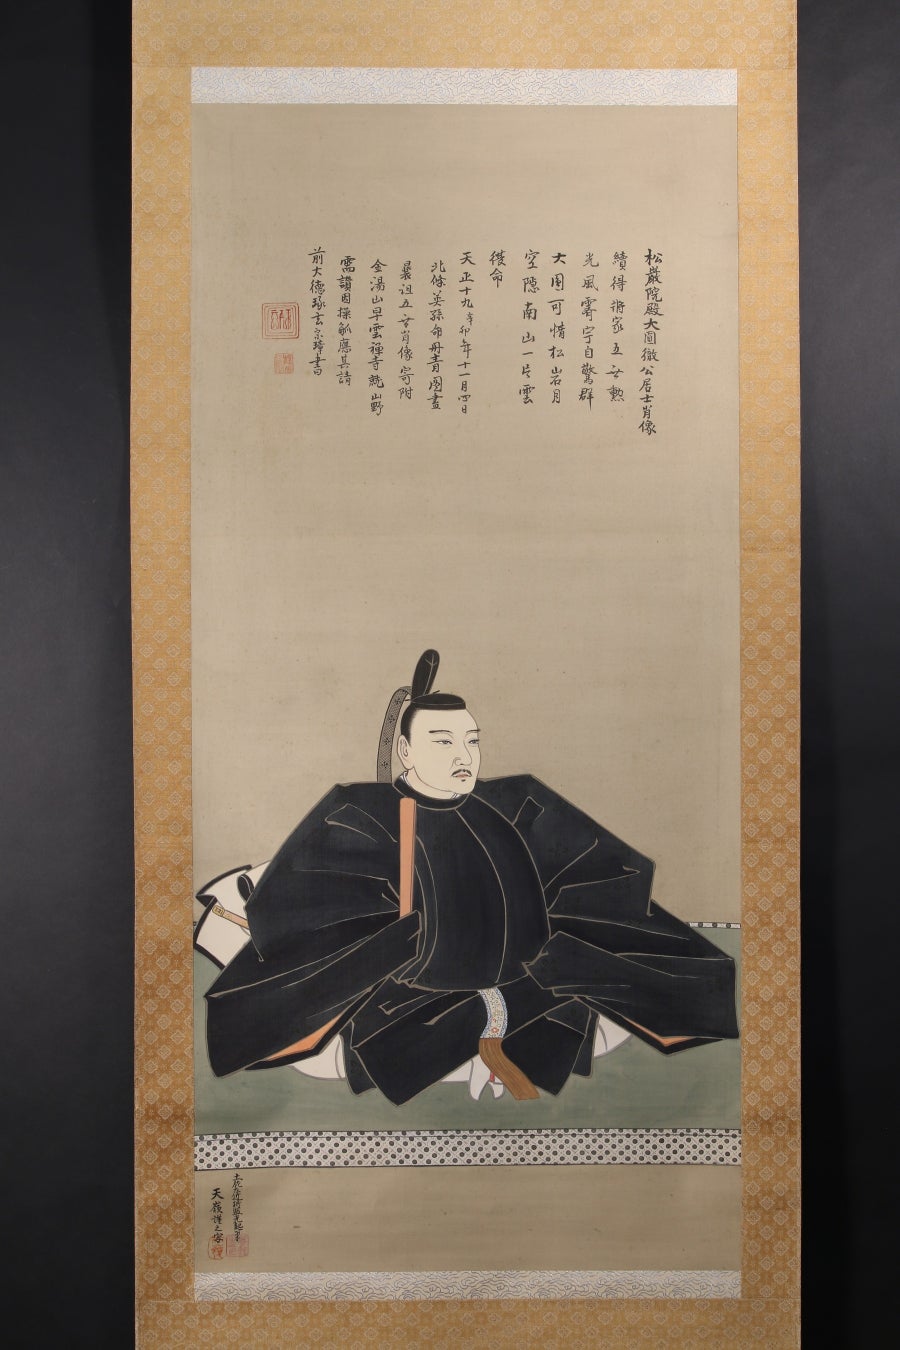 松巖院殿大圓徹公居士肖像
續得將家五世勲
光風霽宇自驚群
大圓可惜松岩月
空隠南山一片雲
復命
天正十九辛卯年十一月四日
北條英孫命丹青圖畫
曩祖五世肖像寄附
金湯山早雲禪寺就山野
需讃因操觚應其請
前大德琢玄宗璋書
天嶺謹之寫